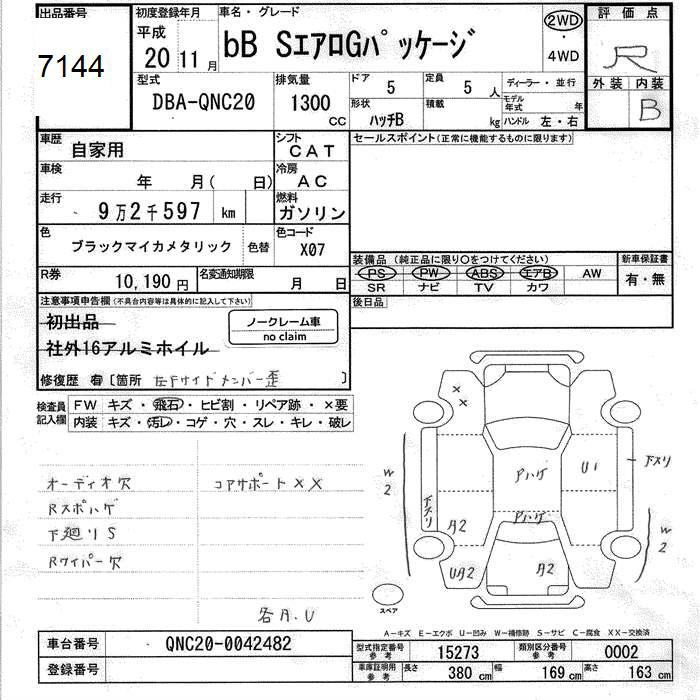 出品番号
7144
初度登録年月
平成
20年11月
車名・グレード
bB SエアロGパッケージ
2WD
・
4WD
評価点
R
外装 内装
B
型式
DBA-QNC20
排気量
1300
CC
ドア
5
定員
5人
ディーラー・並行
形状
ハッチB
積載
kg
モデル年式
年
ハンドル 左・右
車歴
自家用
シフト
CAT
セールスポイント(正常に機能するものに限ります)
車検
年 月(日)
冷房
AC
走行
9万2千597 km
燃料
ガソリン
色
ブラックマイカメタリック
色替
色コード
X07
装備品(純正品に限り○をつけてください)
PS PW ABS エアB AW
SR ナビ TV カワ
新車保証書
有・無
R券
10,190円
名変通知期限
月 日
後日品
注意事項申告欄(不具合内容等は具体的に記入して下さい)
初出品
社外16アルミホイル
ノークレーム車
no claim
修復歴 有 [箇所 左Fサイドメンバー歪]
検査員記入欄
FW キズ・飛石・ヒビ割・リペア跡・×要
内装 キズ・汚レ・コゲ・穴・スレ・キレ・破レ
オーディオ欠
コアサポートXX
Rスポハゲ
下廻りS
Rワイパー欠
各A.U
× ×
W2
下スリ
Aハゲ
U1
下スリ
Aハゲ
A2
W2
UA2
A2
スペア
A-キズ E-エクボ U-凹み W-補修跡 S-サビ C-腐食 XX-交換済
車台番号
QNC20-0042482
型式指定番号
参考
15273
類別区分番号
参考
0002
登録番号
車庫証明用
参考
長さ 380 cm 幅 169 cm 高さ 163 cm